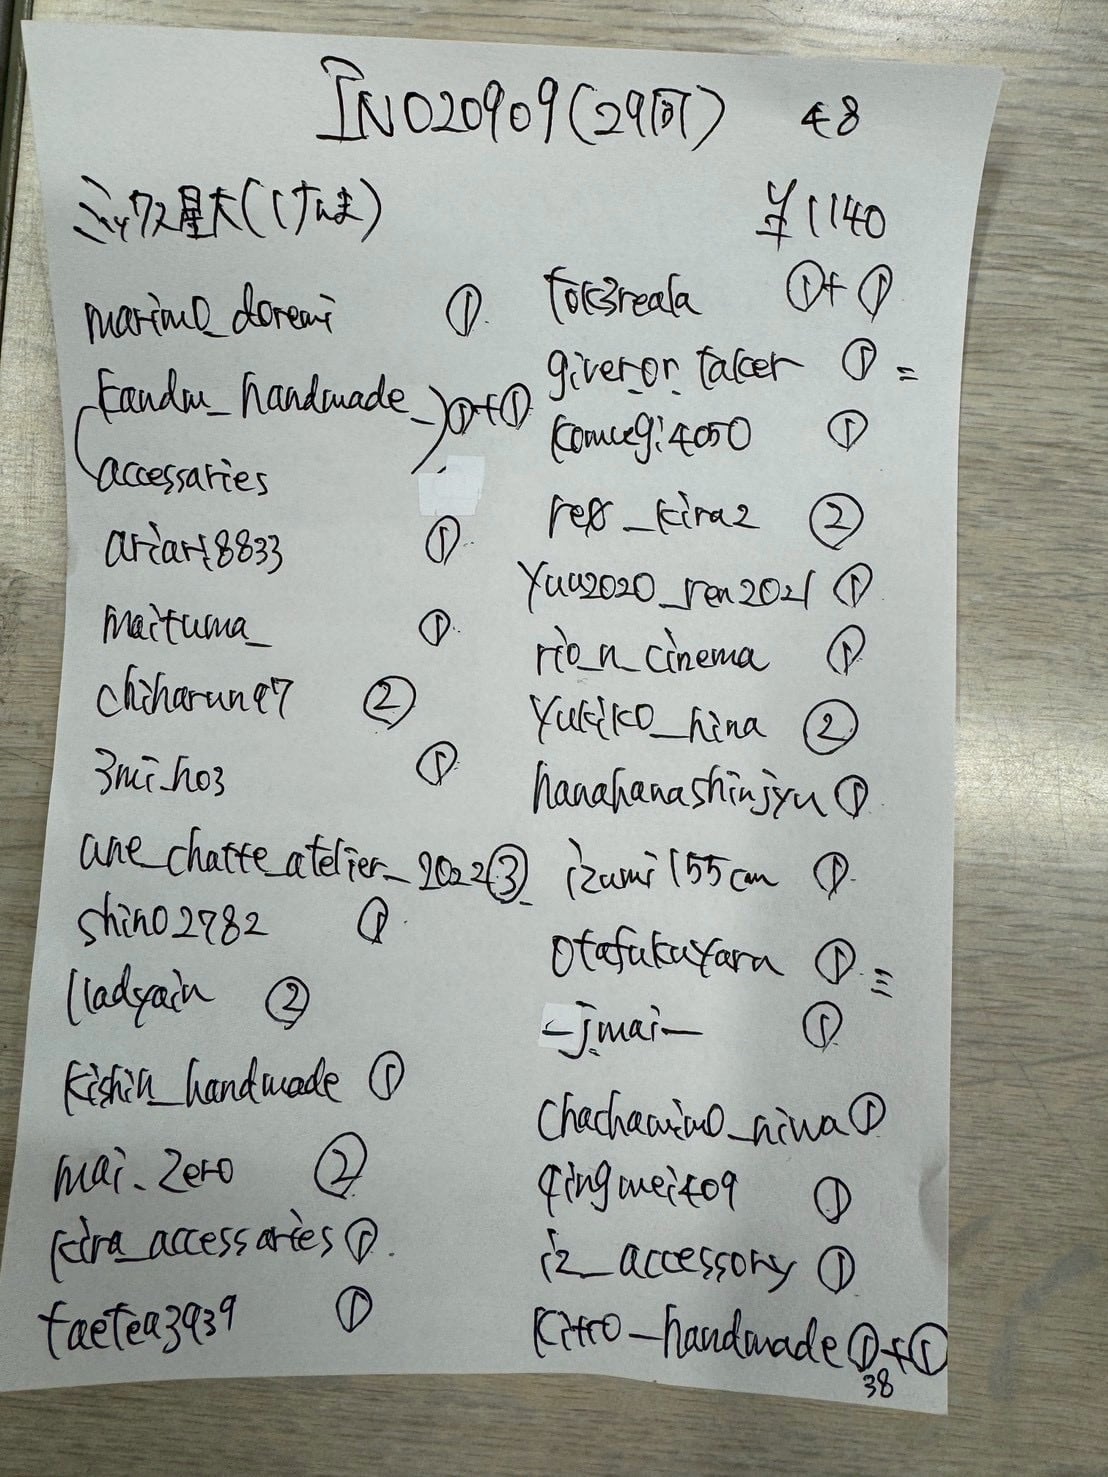 INO20909(29同) 48
ミックス星大(けんま) ¥1140
marimo_doremi ①
(kandm_handmade_
accessaries) ①+①
ariari8833 ①
maituma_ ①
chiharun97 ②
3mi_ho3 ①
une_chatte_atelier_2022 ③
shino2782 ①
lladyain ②
kishin_handmade ①
mai_zero ②
kira_accessaries ①
taetea3939 ①
tok3reala ①+①
giver_or_taker ①=
komugi4050 ①
re8_kira2 ②
yuu2020_ren2021 ①
rio_n_cinema ①
yukiko_hina ②
hanahanashinjyu ①
izumi155cm ①
otafukuyaru ①≡
_jmai_ ①
chachamimo_niwa ①
qingmei409 ①
iz_accessory ①
kitto_handmade ①+①
38